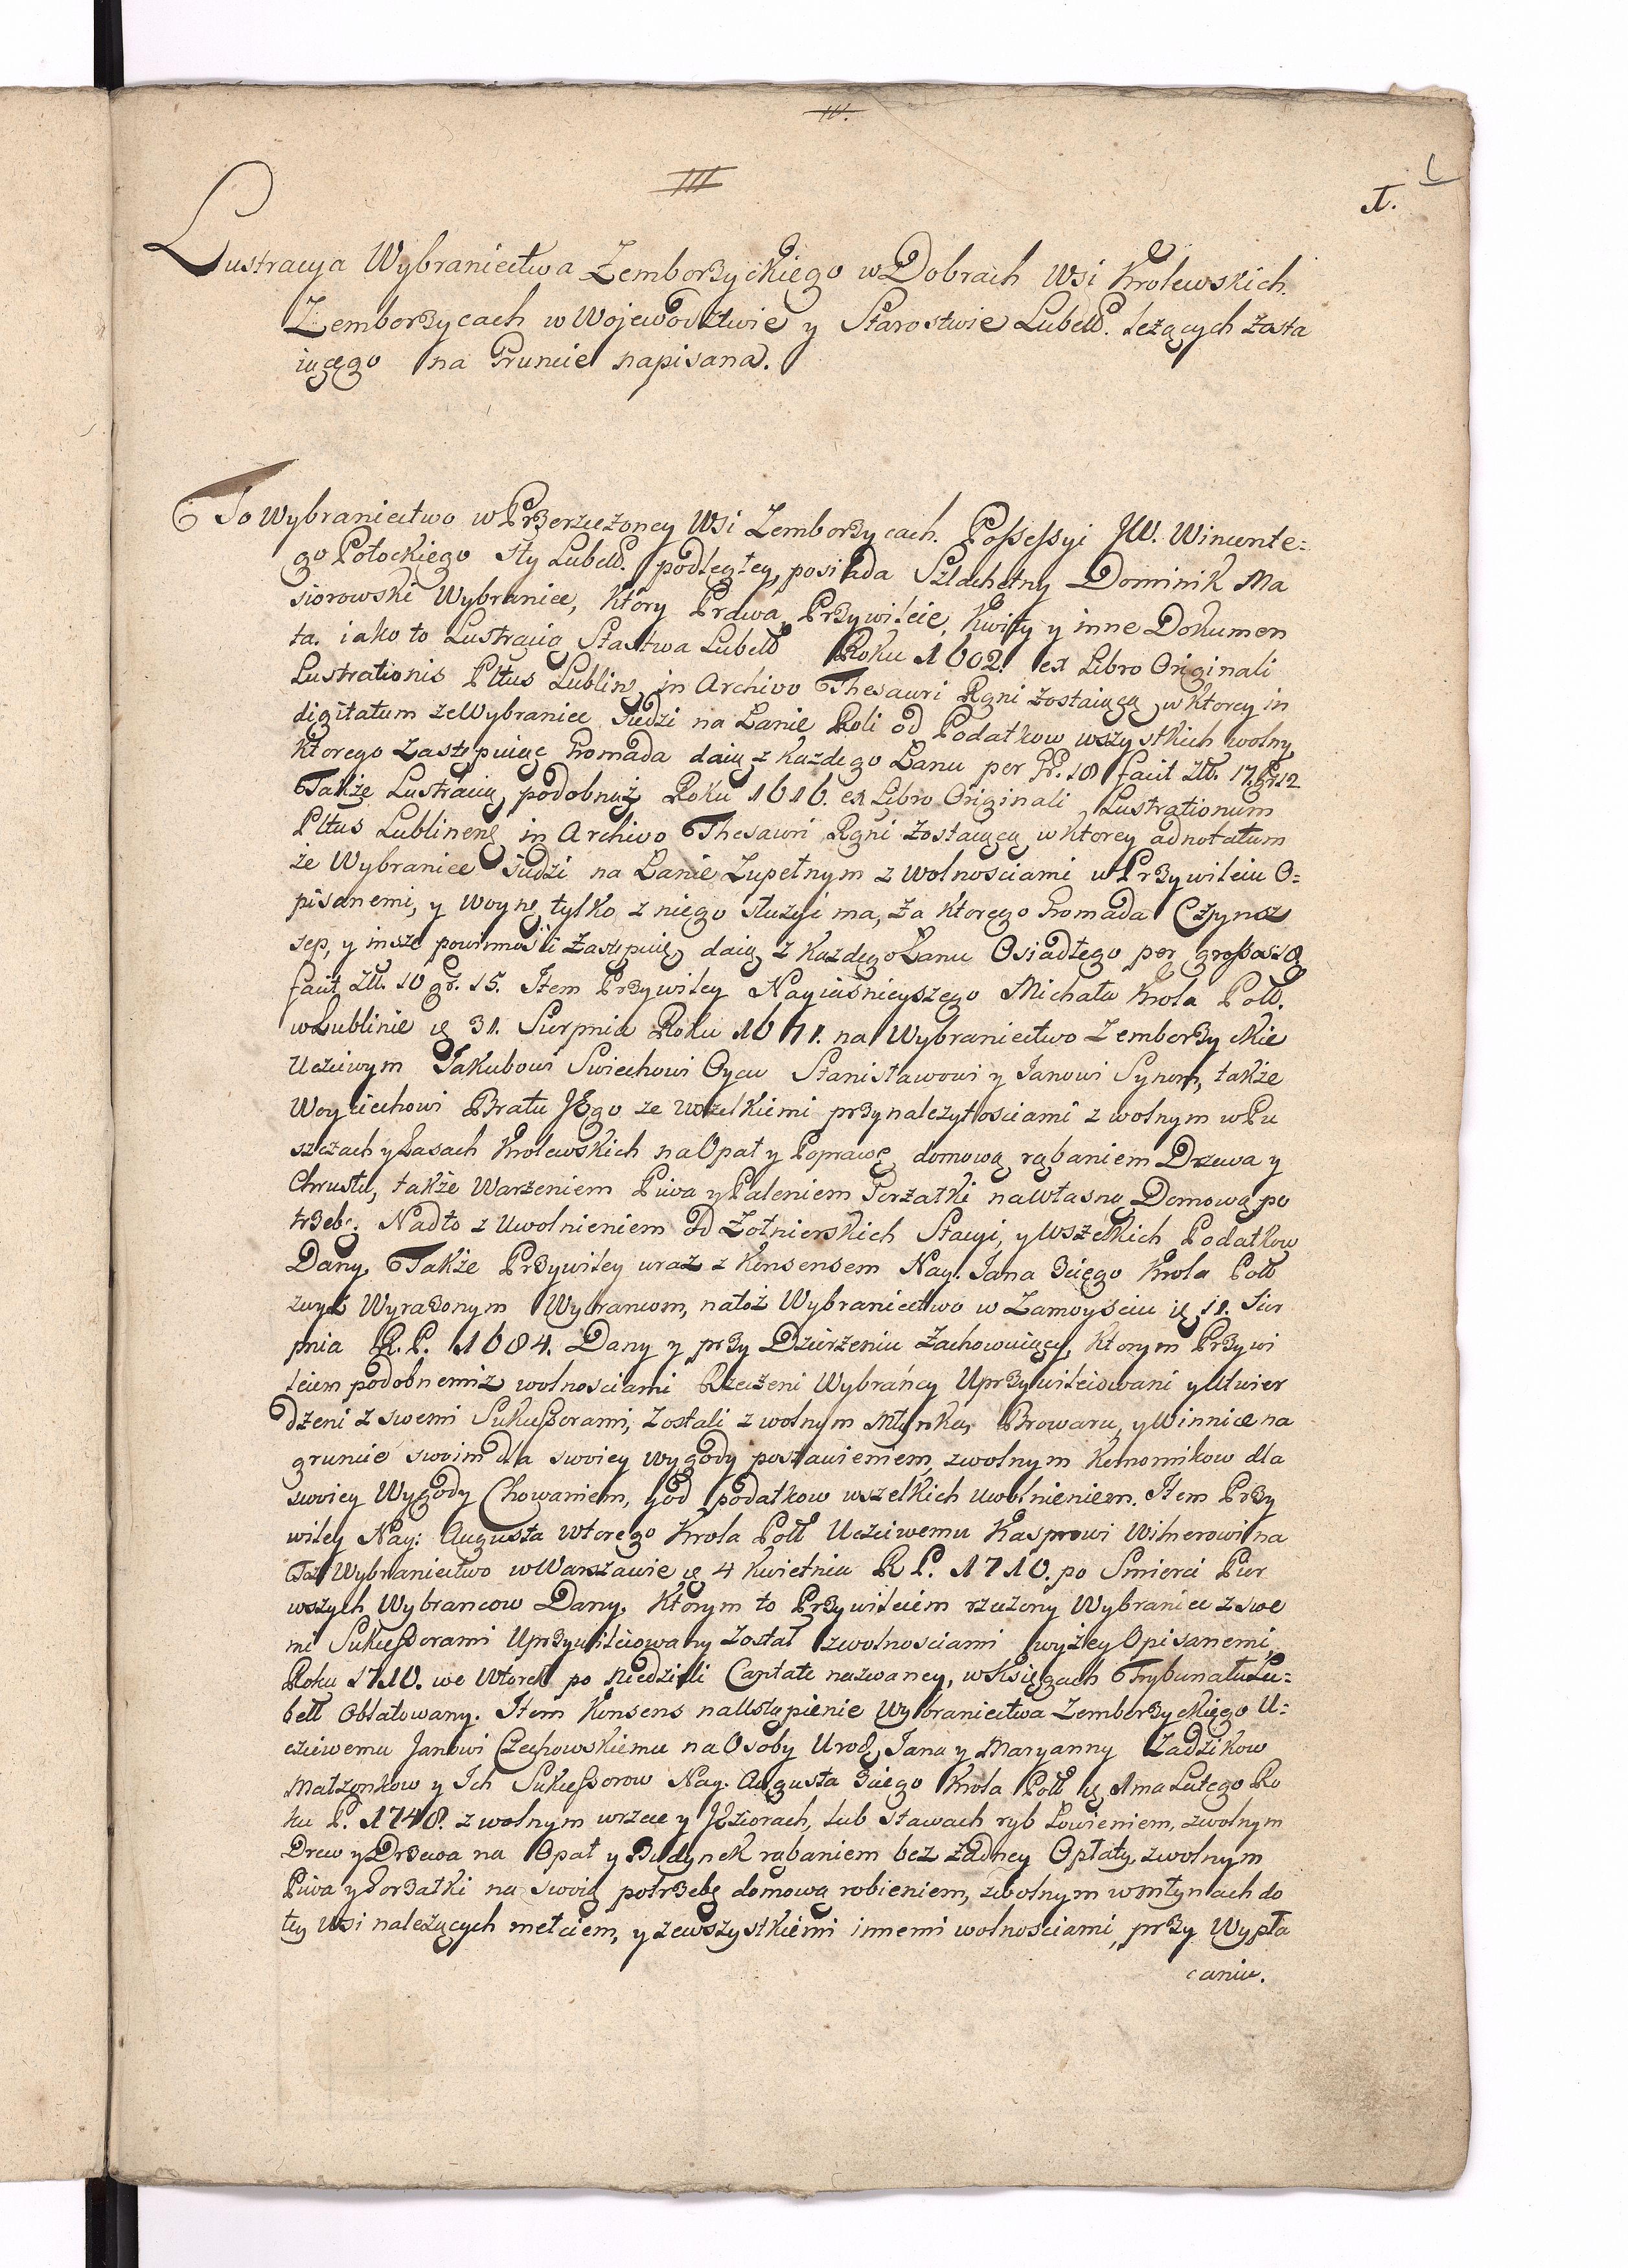 IV.
III
1.
Lustracya Wybraniectwa Zemborzyckiego w Dobrach Wsi Krolewskich
Zemborzycach w Wojewodztwie y Starostwie Lubell. leżących zosta
iącego na Gruncie napisana.
To Wybraniectwo w Przerzeczoney Wsi Zemborzycach. Possessyi JW. Wincente=
go Potockiego Sty Lubell. podległey, posiada Szlachetny Dominik Ma
siorowski Wybraniec, ktory Prawa, Przywileie, Kwity y inne Dokumen
ta. iako to Lustracią Stastwa Lubell Roku 1602. ex Libro Originali
Lustrationis Pltus Lublins in Archivo Thesauri Rgni zostaiącą, w ktorey in
digitatum ze Wybraniec siedzi na Łanie Roli od Podatkow wszystkich wolny,
ktorego zastępuiąc Gromada daią z kazdego Łanu per Gr. 18 facit Zll. 17 gr 12
Także Lustracią podobnąż Roku 1616. ex Libro Originali Lustrationum
Pltus Lublinens in Archivo Thesauri Rgni zostaiącą w ktorey adnotatum
że Wybraniec siedzi na Łanie Zupełnym z wolnosciami w Przywileiu O=
pisanemi, y woynę tylko z niego służyć ma, za ktorego Gromada Czynsz
sep, y insze powinnosci zastępuię, daią z kazdego Łanu Osiadłego per grossos 18
facit Zll. 10 gr. 15. Item Przywiley Nayiaśnieyszego Michała Krola Poll.
w Lublinie 31. Sierpnia Roku 1671. na Wybraniectwo Zemborzyckie
Uczciwym Jakubowi Swiechowi Oycu Stanisławowi y Janowi Synom, także
Woyciechowi Bratu JEgo ze wszelkiemi przynalezytosciami z wolnym w Pu
szczach y Lasach Krolewskich na Opał y Poprawę domową rąbaniem Drzewa y
Chrustu, także Warzeniem Piwa y Paleniem Gorzałki na własną Domową po
trzebę. Nadto z uwolnieniem od Żołnierskich Stacyi, y wszelkich Podatkow
Dany. Także Przywiley wraz z Konsensem Nay. Jana 3ciego Krola Poll
zwyż Wyrażonym Wybrancom, na toż Wybraniectwo w Zamoyściu 11. Sier
pnia R. P. 1684. Dany y przy Dzierżeniu zachowuiący, ktorym Przywi
leiem podobnemiż wolnosciami Rzeczeni Wybrańcy Uprzywileiowani y Utwier
dzeni z swemi Sukcessorami, zostali z wolnym Młynka, Browaru, y Winnice na
gruncie swoim dla swoiey wygody postawieniem, z wolnym Komornikow dla
swoiey Wygody Chowaniem, y od podatkow wszelkich uwolnieniem. Item Przy
wiley Nay: Augusta wtorego Krola Poll Uczciwemu Kasprowi Witnerowi na
Toż Wybraniectwo w Warszawie 4 Kwietnia R P. 1710. po Smierci Pier
wszych Wybrancow Dany. Ktorym to Przywileiem rzeczony Wybraniec z swe
mi Sukcessorami Uprzywileiowany został z wolnosciami wyżey Opisanemi,
Roku 1710. we Wtorek po Niedzieli Cantate nazwaney, w Księgach Trybunału Lu=
bell Oblatowany. Item Konsens na Ustąpienie Wybraniectwa Zemborzyckiego U=
czciwemu Janowi Czechowskiemu na Osoby Urod. Jana y Maryanny Zadzikow
Małżonkow y Ich Sukcessorow Nay. Augusta 3ciego Krola Poll 1ma Lutego Ro
ku P. 1748. z wolnym w rzece y Jeziorach, lub Stawach ryb Łowieniem, z wolnym
Drew y Drzewa na Opał y Budynek rąbaniem bez żadney Opłaty, z wolnym
Piwa y Gorzałki na swoią potrzebę domową robieniem, z wolnym w młynach do
tey Wsi należących melciem, y ze wszystkiemi innemi wolnosciami, przy Wypła
caniu.